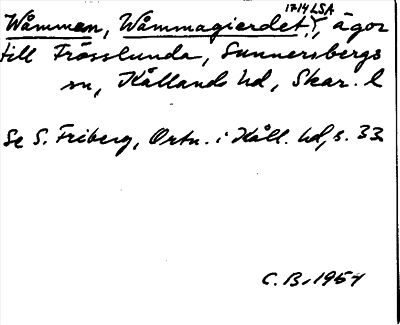 1714 LSA
Wåmman, Wåmmagierdet, ägor
till Frösslunda, Sunnersbergs
sn, Kållands hd, Skar. l
Se S. Friberg, Ortn. i Kåll. hd, s. 33
C. B. 1954